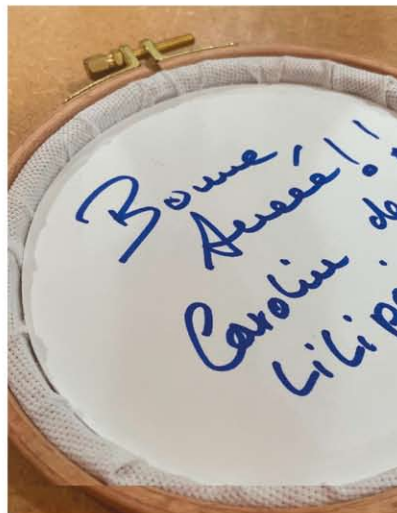 Bonne
Année!!
Caroline de